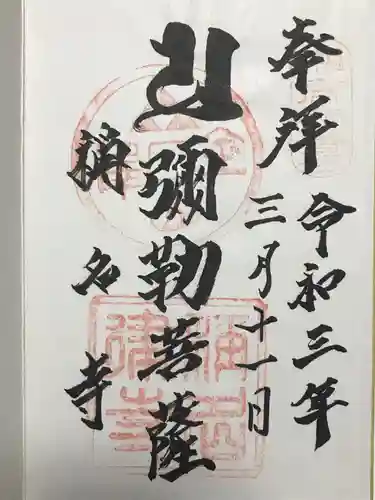 奉拝
令和三年
三月十一日
彌勒菩薩
稱名寺